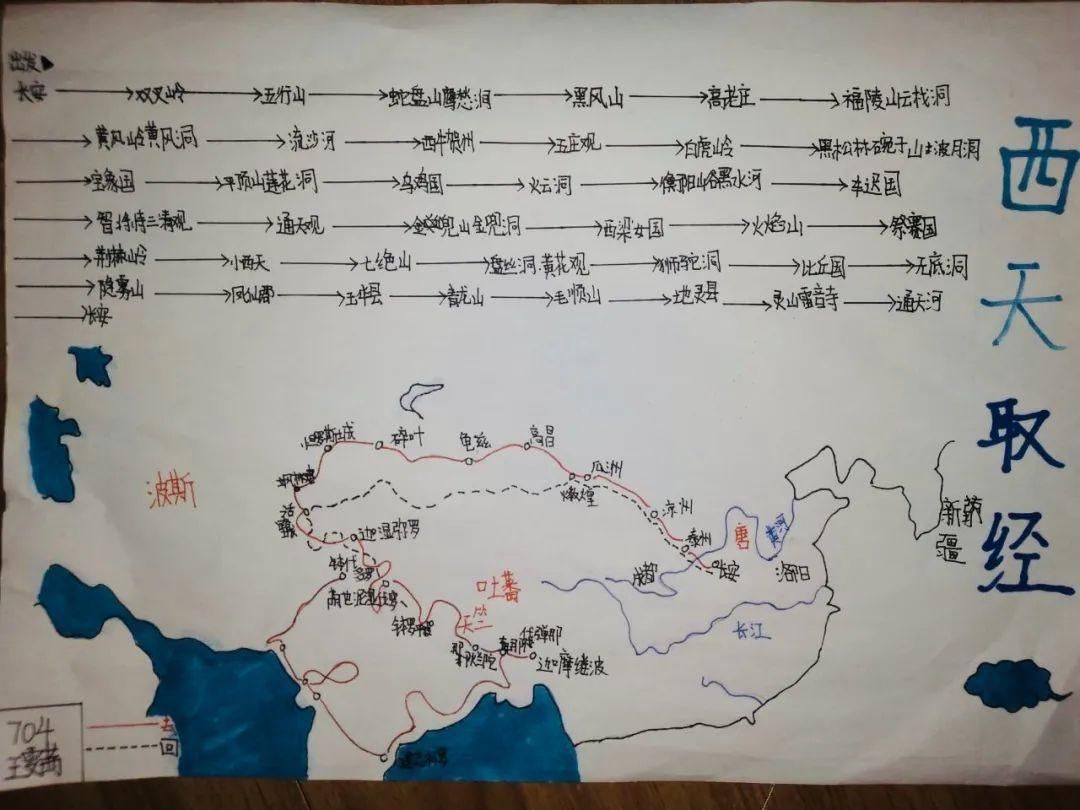 出发
长安 双叉岭 五行山 蛇盘山鹰愁涧 黑风山 高老庄 福陵山云栈洞
黄风岭黄风洞 流沙河 西牛贺州 五庄观 白虎岭 黑松林碗子山波月洞
宝象国 平顶山莲花洞 乌鸡国 火云洞 衡阳山谷黑水河 车迟国
三清观 通天观 金兜山金兜洞 西梁女国 火焰山 祭赛国
荆棘岭 小西天 七绝山 盘丝洞黄花观 狮驼洞 比丘国 无底洞
隐雾山 凤仙郡 玉华县 青龙山 毛顺山 地灵县 灵山雷音寺 通天河
长安
西天取经
碎叶
龟兹
高昌
瓜州
敦煌
凉州
秦州
长安
波斯
活国
迦湿弥罗
吐蕃
天竺
那烂陀
迦摩缕波
成都
唐
黄河
洛阳
长江
704
去
回